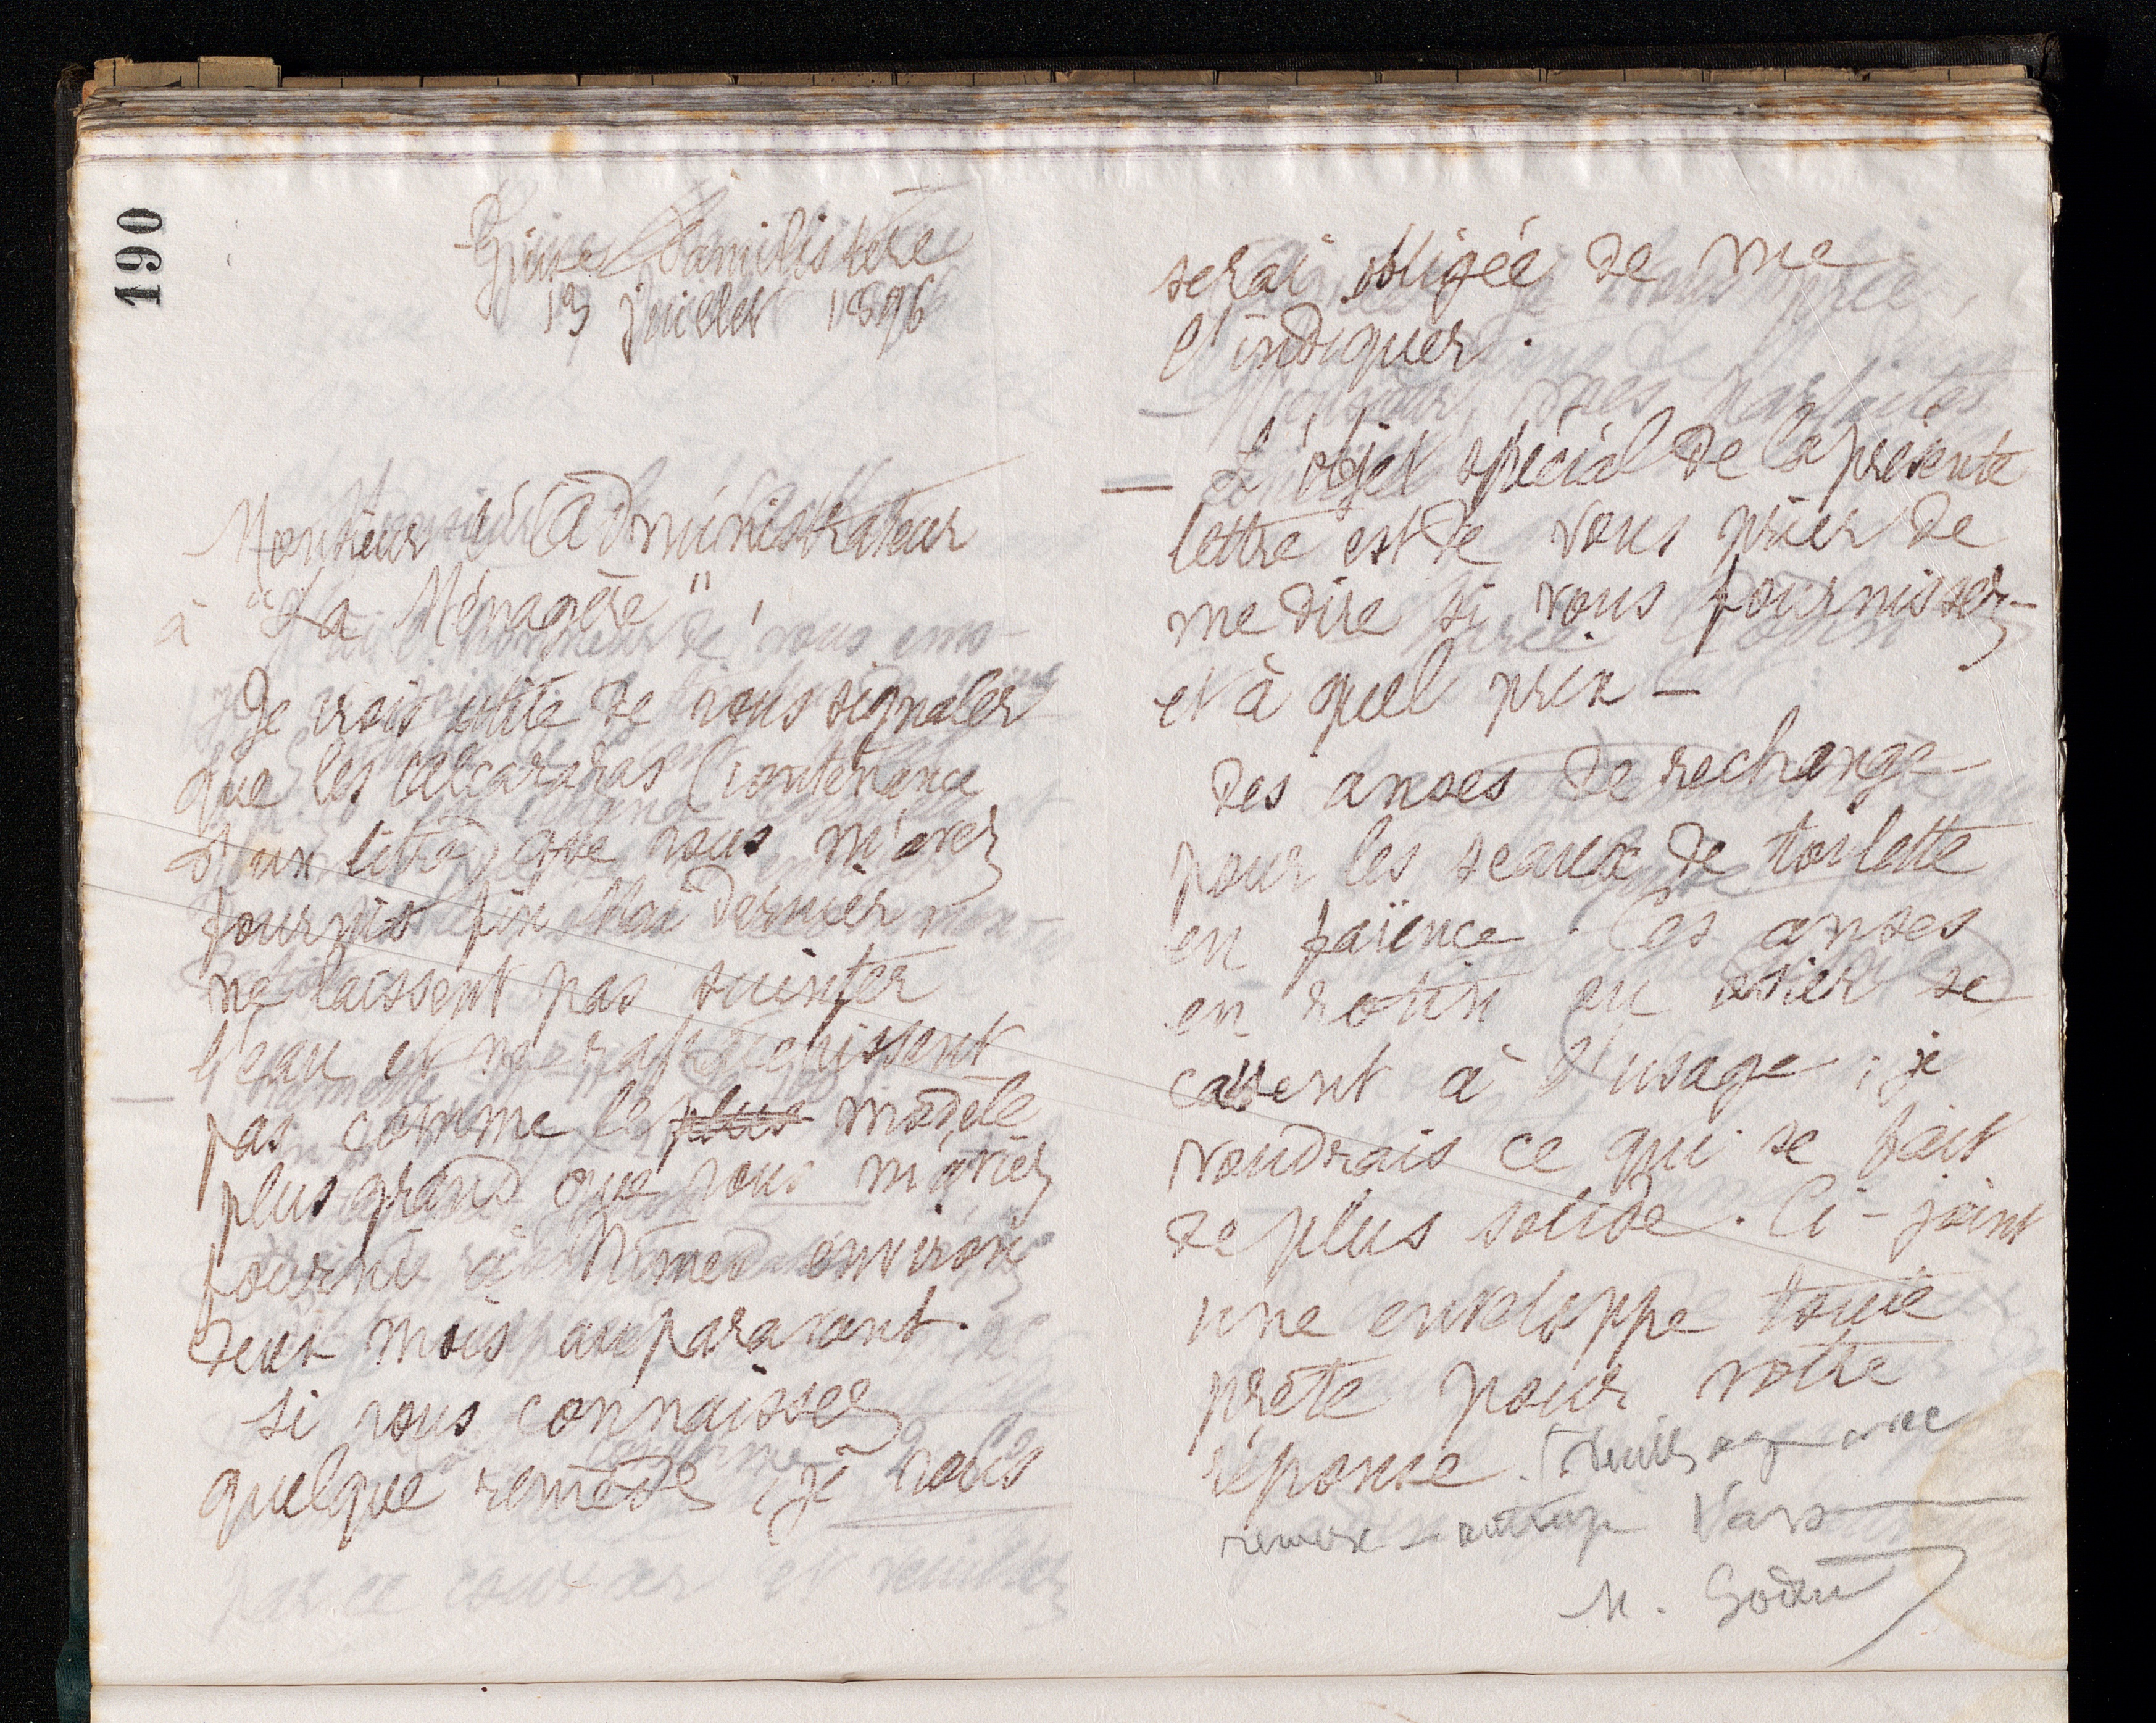 190
Guise Familistère
13 Juillet 1896
Monsieur l'Administrateur
à "La Ménagère"
Je crois utile de vous signaler
que les alcarazas (contenance
d'un litre) que vous m'avez
fournis fin Mai dernier
ne laissent pas suinter
l'eau et ne rafraichissent
pas comme le plus modèle
plus grand que vous m'aviez
fourni à Nîmes environ
deux mois auparavant.
si vous connaissez
quelque remède, je vous
serai obligée de me
l'indiquer.
L'objet spécial de la présente
lettre est de vous prier de
me dire si vous fournissez
et à quel prix –
des anses de rechange
pour les seaux de toilette
en faïence. Ces anses
en rotin ou osier se
cassent à l'usage ; je
voudrais ce qui se fait
de plus solide. Ci-joint
une enveloppe toute
prête pour votre
réponse. Veuillez
M. Godin